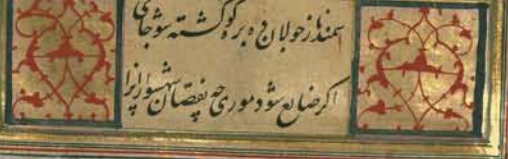 سمندناز جولان ده برکو کشته سوجای
اکر ضایع شود موری چه نقصان شهسوارانرا